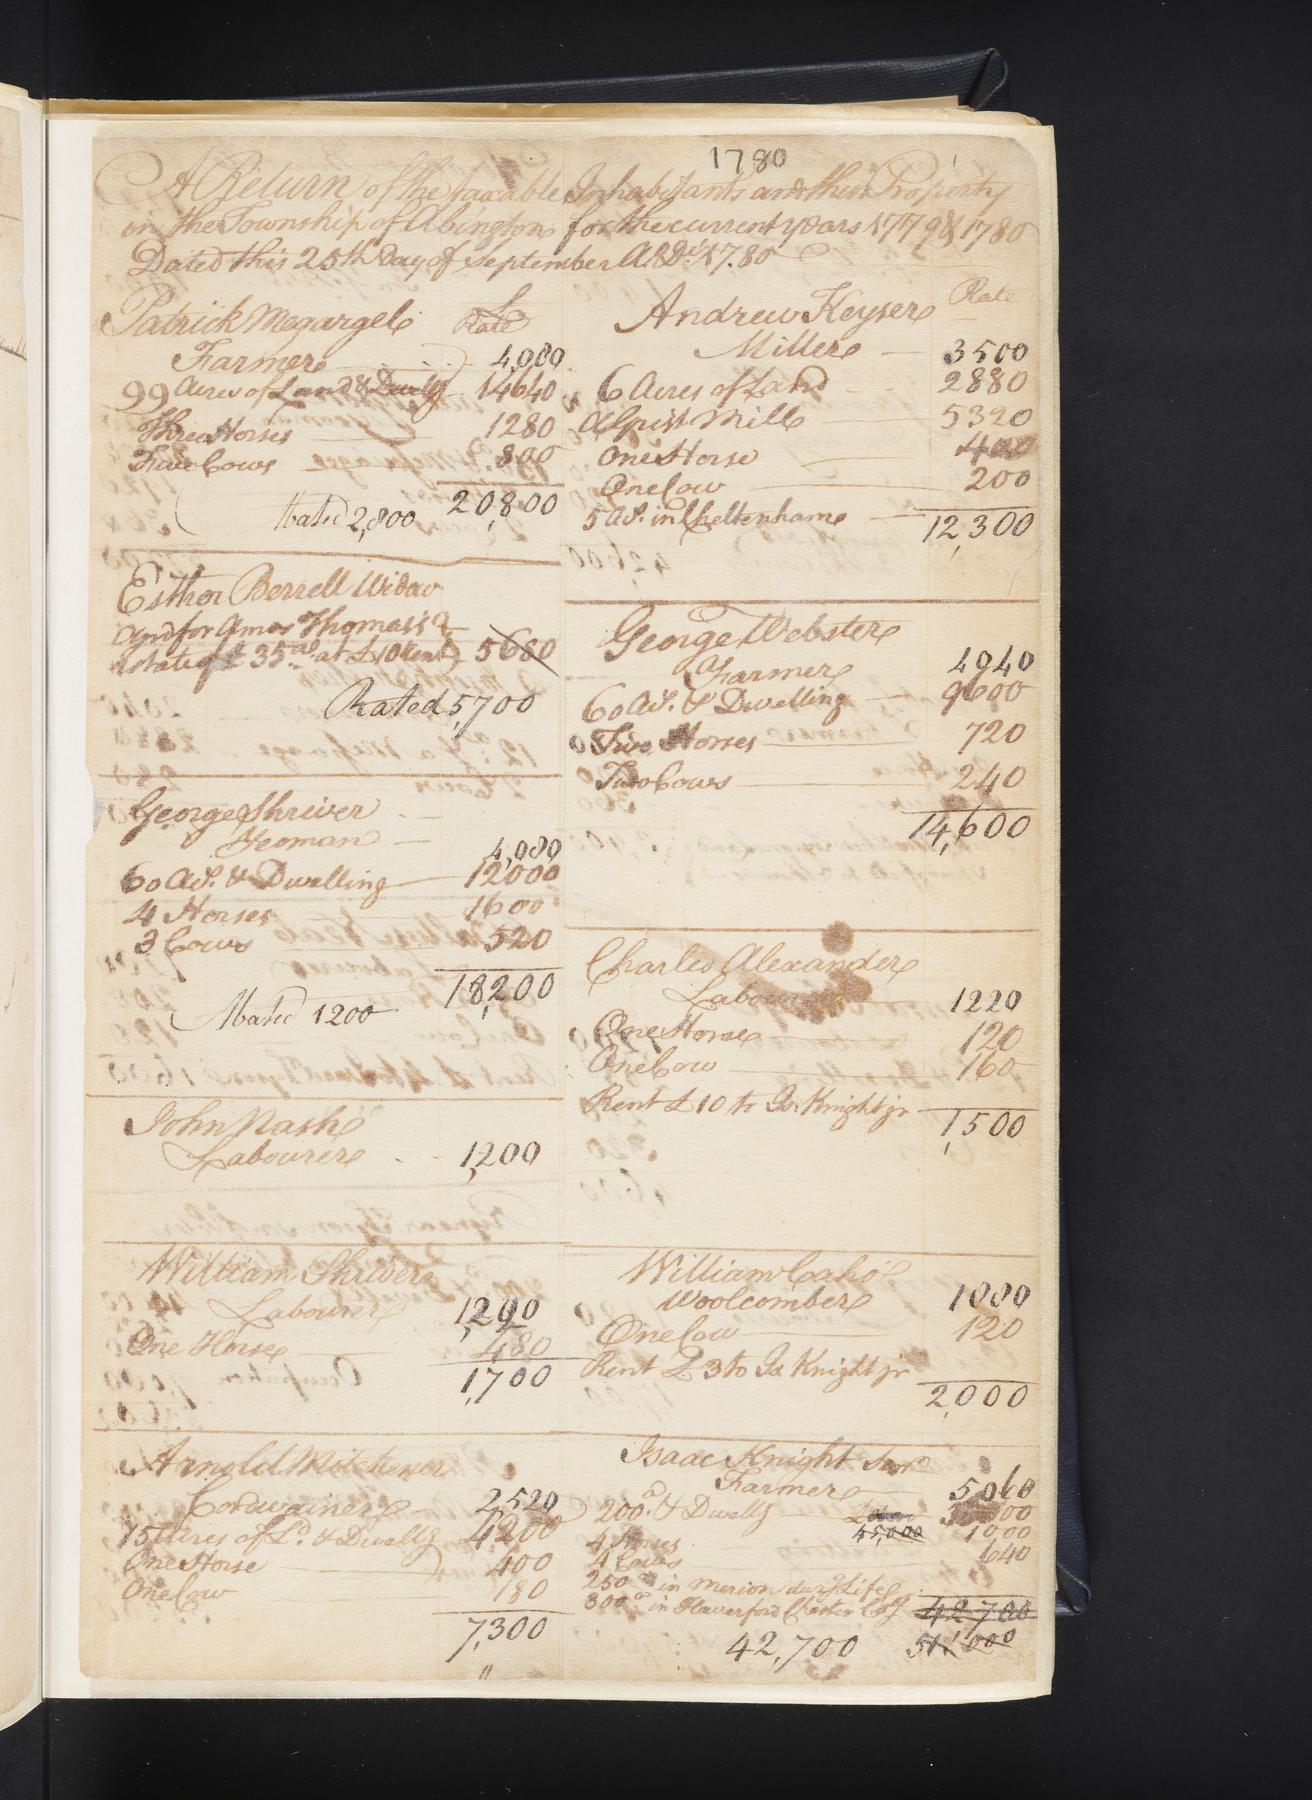 1780
A Return of the taxable Inhabitants and their Property
in the Township of Abington for the current years 1779 & 1780
Dated this 25th Day of September A.D. 1780
Patrick Megargele £ Rate
Farmer 4,080
99 Acres of Land & Dwellg 14640
Three Horses 1280
Five Cows 800
20,800
Abated 2,800
Esther Berrell Widow
and for Amos Thomas's
Estate of 35 as. at £10 rent 5680
Rated 5,700
George Shriver
Yeoman 4,080
60 As. & Dwelling 12000
4 Horses 1600
3 Cows 520
18,200
Abated 1200
John Nash
Labourer 1,200
William Shriver
Labourer 1,290
One Horse 480
1,700
Arnold Mitchener
Cordwainer 2520
75 Acres of Ld. & Dwellg 4200
One Horse 400
One Cow 180
7,300
"
Andrew Keyser Rate
Miller 3500
6 Acres of Land 2880
A Grist Mill 5320
One Horse 400
One Cow 200
5 As. in Cheltenham 12,300
George Webster
Farmer 4040
60 As. & Dwelling 9600
Two Horses 720
Two Cows 240
14,600
Charles Alexander
Labourer 1220
One Horse 120
One Cow 160
Rent £10 to Is. Knight jr
1,500
William Caho
Woolcomber 1000
One Cow 120
Rent £3 to Is. Knight jr
2,000
Isaac Knight Senr
Farmer 5060
200 a. & Dwellg
45,000
4 Horses 1000
4 Cows 640
250 a in Merion durg Life
300 a in Haverford Chester Coy 42,700
42,700 51,000